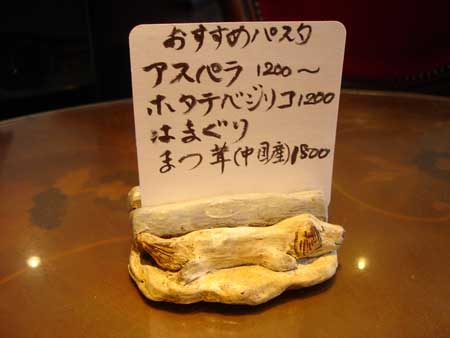 おすすめパスタ
アスペラ 1200〜
ホタテベジリコ 1200
はまぐり
まつ茸(中国産) 1800